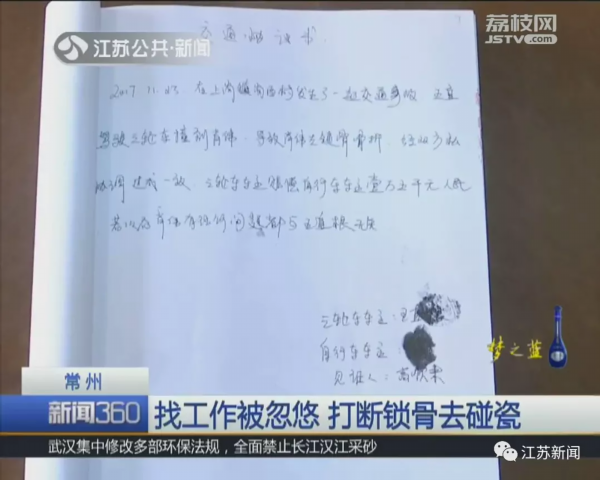 江苏公共·新闻
荔枝网
JSTV.com
交通协议书
2017.11.23.在上尚镇沟西村发生了一起交通事故
驾驶三轮车撞到肖伟.导致肖伟左锁骨骨折.经双方私
达成一致.三轮车车主赔偿自行车车主壹万五千元人民
若以后肖伟有任何问题都与王直根无关
三轮车车主:王
自行车车主:
见证人:
梦之蓝
常州
新闻360
找工作被忽悠 打断锁骨去碰瓷
武汉集中修改多部环保法规，全面禁止长江汉江采砂
江苏新闻